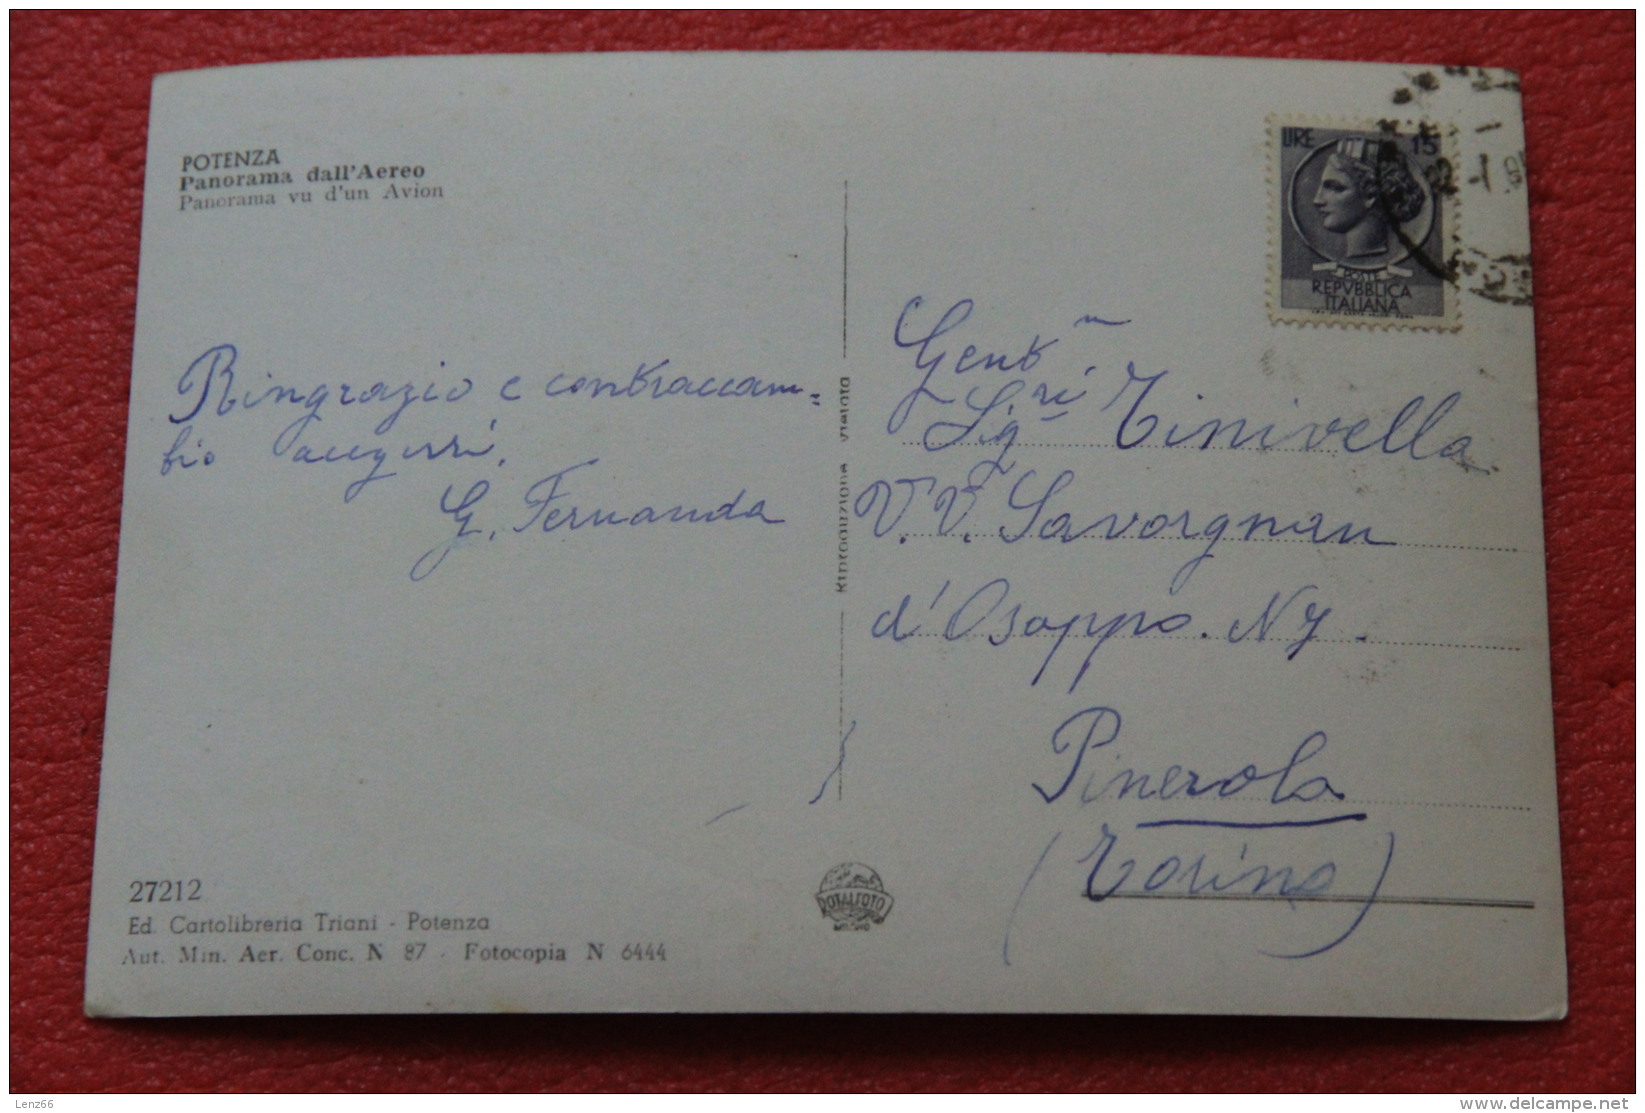 POTENZA
Panorama dall'Aereo
Panorama vu d'un Avion
LIRE 15
POSTE
REPVBBLICA
ITALIANA
Ringrazio e contraccam=
bio auguri.
G. Fernanda
Riproduzione vietata
Gent.m
Sig.ri Tinivella
V.V. Savorgnan
d'Osoppo. N 7.
Pinerolo
(Torino)
27212
Ed. Cartolibreria Triani - Potenza
Aut. Min. Aer. Conc. N 87 - Fotocopia N 6444
TOTALFOTO
MILANO
Lenz66
delcampe.net